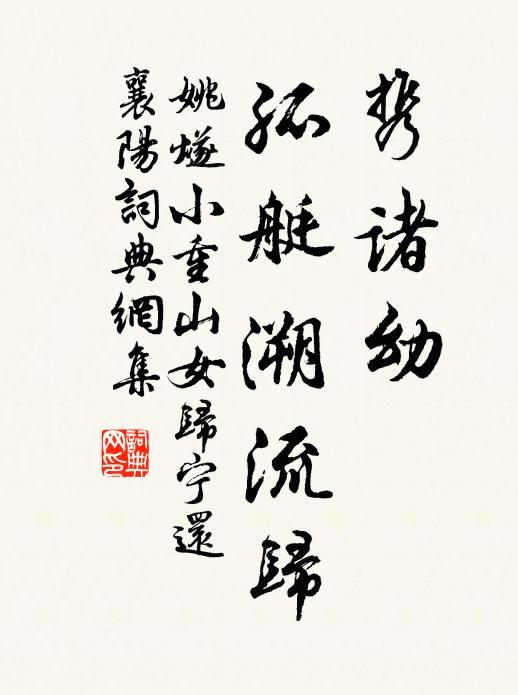 携诸幼
孤艇溯流歸
姚燧小重山女歸宁還
襄陽詞典網集
詞典
网印